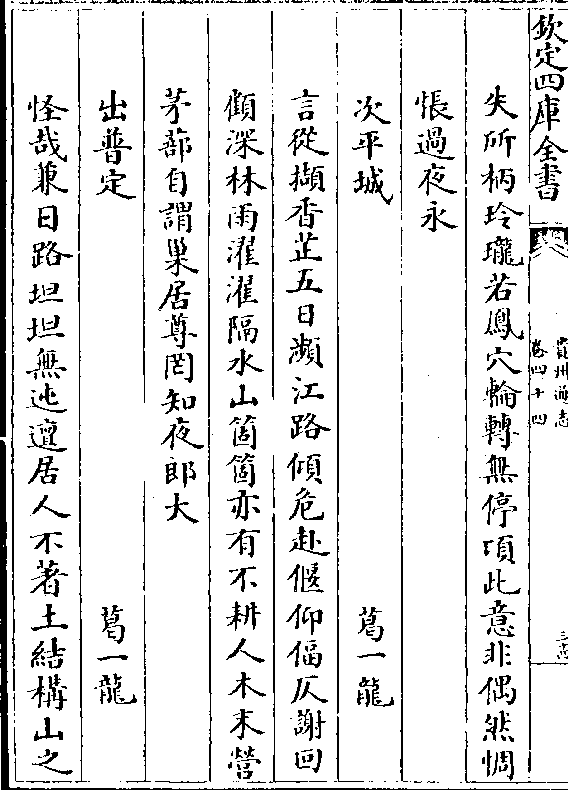 欽定四庫全書
貴州通志
卷四十四
失所柄玲瓏若鳳穴輪轉無停項此意非偶然惆
悵過夜永
次平城 葛一龍
言從擷香芷五日瀕江路傾危赴偃仰傴仄謝回
顧深林雨濯濯隔水山箇箇亦有不耕人木末營
茅蔀自謂巢居尊罔知夜郎大
出普定 葛一龍
怪哉兼日路坦坦無迍邅居人不著土結構山之